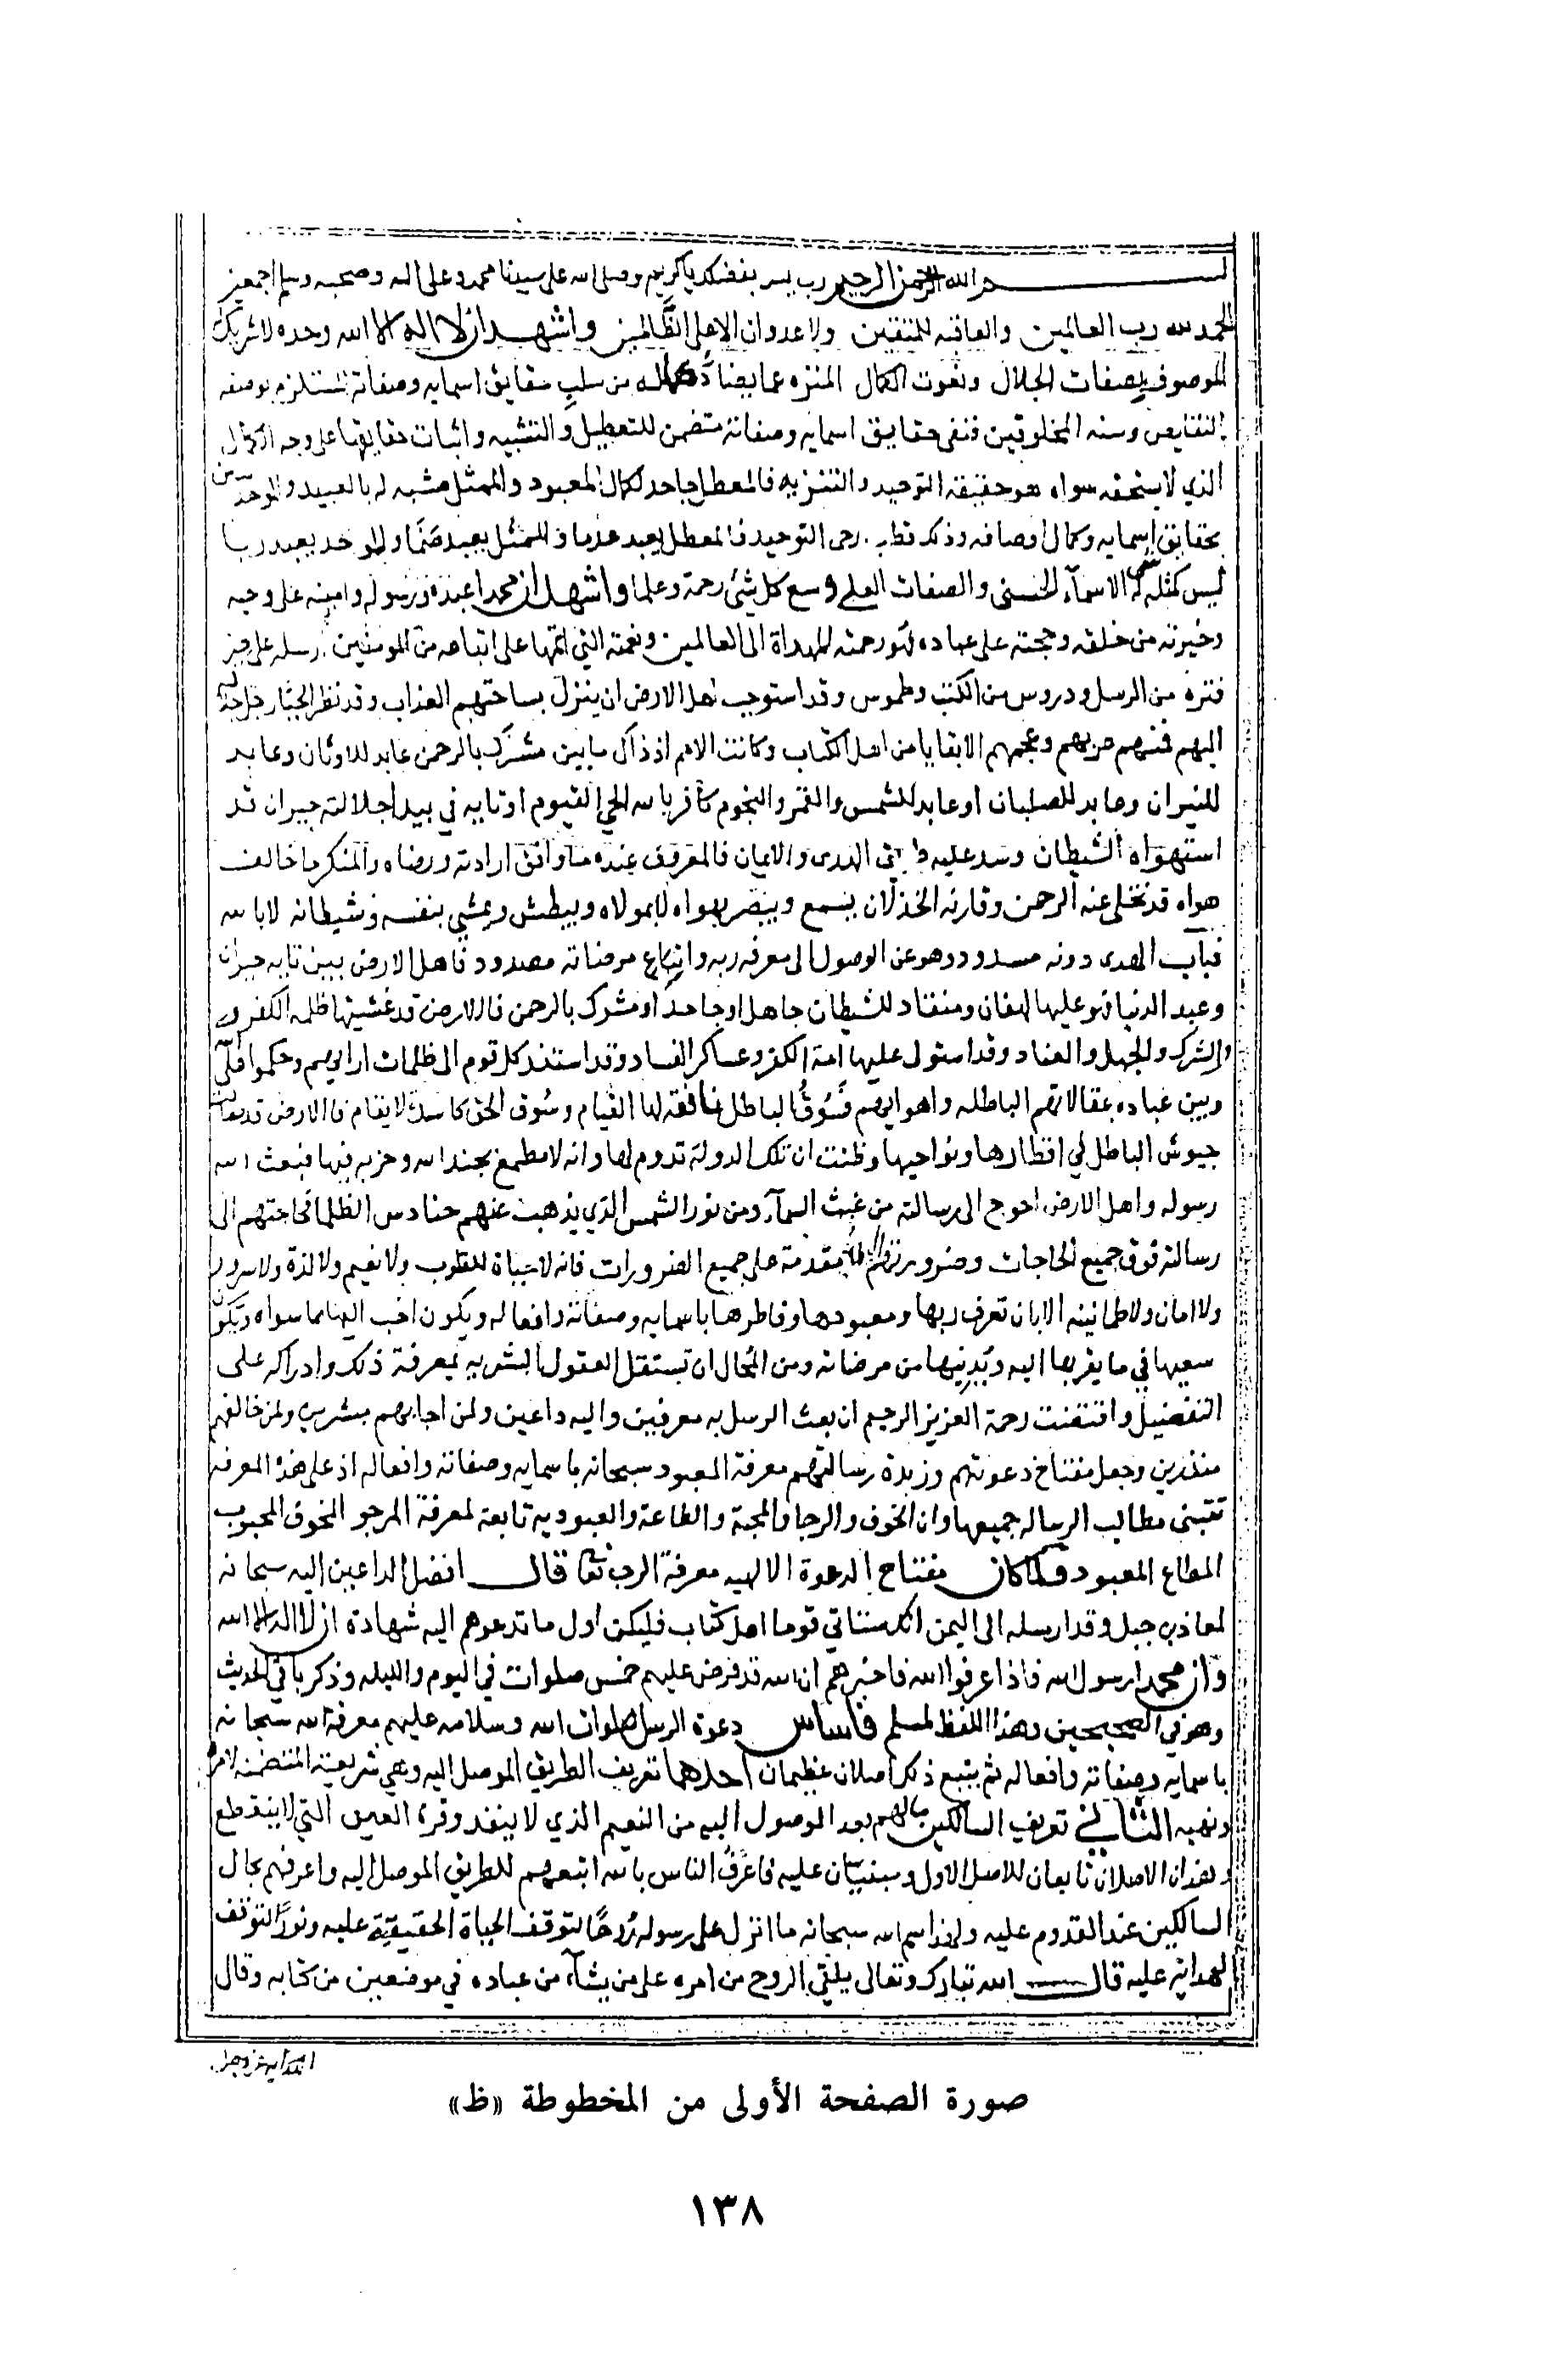 بسم الله الرحمن الرحيم رب يسر بفضلك يا كريم وصلى الله على سيدنا محمد وعلى اله وصحبه وسلم اجمعين
الحمد لله رب العالمين والعاقبه للمتقين ولا عدوان الا على الظالمين واشهد ان لا اله الا الله وحده لا شريك
الموصوف بصفات الجلال ونعوت الكمال المنزه عما يضاد كماله من سلب حقايق اسمايه وصفاته المستلزم لوصفه
بالنقايص وشبه المخلوقين فنفى حقايق اسمايه وصفاته متضمن للتعطيل والتشبيه واثبات حقايقها على وجه الكمال
الذي لا يستحقه سواه هو حقيقة التوحيد والتنزيه فالمعطل جاحد لكمال المعبود والممثل مشبه له بالعبيد والموحد مبين
بحقايق اسمايه وكمال اوصافه وذلك قطب رحى التوحيد فالمعطل يعبد عدما والممثل يعبد صنما والموحد يعبد ربا
ليس كمثله شي له الاسماء الحسنى والصفات العلى وسع كل شئ رحمة وعلما واشهد ان محمدا عبده ورسوله وامينه على وحيه
وخيرته من خلقه وحجته على عباده فهو رحمته المهداة الى العالمين ونعمته التي اتمها على اتباعه من المومنين ارسله على حين
فترة من الرسل ودروس من الكتب وطموس وقد استوجب اهل الارض ان ينزل بساحتهم العذاب وقد نظر الجبار جل جلاله
اليهم فمقتهم عربهم وعجمهم الا بقايا من اهل الكتاب وكانت الامم اذ ذاك ما بين مشرك بالرحمن عابد للاوثان وعابد
للنيران وعابد للصلبان او عابد للشمس والقمر والنجوم كافر بالله الحي القيوم او تايه في بيدا جلالته حيران قد
استهواه الشيطان وسد عليه طريق الهدى والايمان فالمعروف عنده ما وافق ارادته ورضاه والمنكر ما خالف
هواه قد تخلى عنه الرحمن وقارنه الخذلان يسمع ويبصر بهواه لا بمولاه ويبطش ويمشي بنفسه وشيطانه لا بالله
فباب الهدى دونه مسدود وهو عن الوصول الى معرفة ربه واتباع مرضاته مصدود فاهل الارض بين تايه حيران
وعبد الدنيا فهو عليها لهفان ومنقاد للشيطان جاهل او جاحد او مشرك بالرحمن فالارض قد غشيتها ظلمه الكفر
والشرك والجهل والعناد وقد استولى عليها ايمة الكفر وعساكر الفساد وقد استند كل قوم الى ظلمات ارايهم وحكموا على الله
وبين عباده بمقالاتهم الباطله واهوايهم فسوق الباطل نافقه لها القيام وسوق الحق كاسدة لا يقام فالارض قد صالت
جيوش الباطل في اقطارها ونواحيها وظنت ان تلك الدولة تدوم لها وانه لا مطمع بجند الله وحزبه فيها فبعث الله
رسوله واهل الارض احوج الى رسالته من غيث السماء ومن نور الشمس الذي يذهب عنهم حنادس الظلما فحاجتهم الى
رسالته فوق جميع الحاجات وضرورتهم اليها مقدمة على جميع الضرورات فانه لا حياة للقلوب ولا نعيم ولا لذة ولا سرور
ولا امان ولا طمانينه الا بان تعرف ربها ومعبودها وفاطرها باسمايه وصفاته وافعاله ويكون احب اليها مما سواه ويكون
سعيها في ما يقربها اليه ويدنيها من مرضاته ومن المحال ان تستقل العقول البشريه بمعرفة ذلك وادراكه على
التفصيل واقتضت رحمة العزيز الرحيم ان بعث الرسل به معرفين واليه داعين ولمن اجابهم مبشرين ولمن خالفهم
منذرين وجعل مفتاح دعوتهم وزبدة رسالتهم معرفة المعبود سبحانه باسمايه وصفاته وافعاله اذ على هذه المعرفه
تبتنى مطالب الرساله جميعها وان الخوف والرجا والمحبة والطاعة والعبوديه تابعة لمعرفة المرجو المخوف المحبوب
المطاع المعبود ولما كان مفتاح الدعوة الالهيه معرفة الرب تعالى قال افضل الداعين اليه سبحانه
لمعاذ بن جبل وقد ارسله الى اليمن انك ستاتي قوما اهل كتاب فليكن اول ما تدعوهم اليه شهادة ان لا اله الا الله
وان محمدا رسول الله فاذا عرفوا الله فاخبرهم ان الله قد فرض عليهم خمس صلوات في اليوم والليله وذكر باقي الحديث
وهو في الصحيحين وهذا اللفظ لمسلم فاساس دعوة الرسل صلوات الله وسلامه عليهم معرفة الله سبحانه
باسمايه وصفاته وافعاله ثم يتبع ذلك اصلان عظيمان احدهما تعريف الطريق الموصل اليه وهي شريعته المتضمنه لامره
ونهيه الثاني تعريف السالكين ما لهم بعد الوصول اليه من النعيم الذي لا ينفد وقرة العين التي لا ينقطع
وهذان الاصلان تابعان للاصل الاول ومبنيان عليه فاعرف الناس بالله اتبعهم للطريق الموصل اليه واعرفهم بحال
السالكين عند القدوم عليه ولهذا سمى الله سبحانه ما انزل على رسوله روحا لتوقف الحياة الحقيقية عليه ونورا لتوقف
الهداية عليه قال الله تبارك وتعالى يلقي الروح من امره على من يشاء من عباده في موضعين من كتابه وقال
صورة الصفحة الأولى من المخطوطة «ظ»
١٣٨